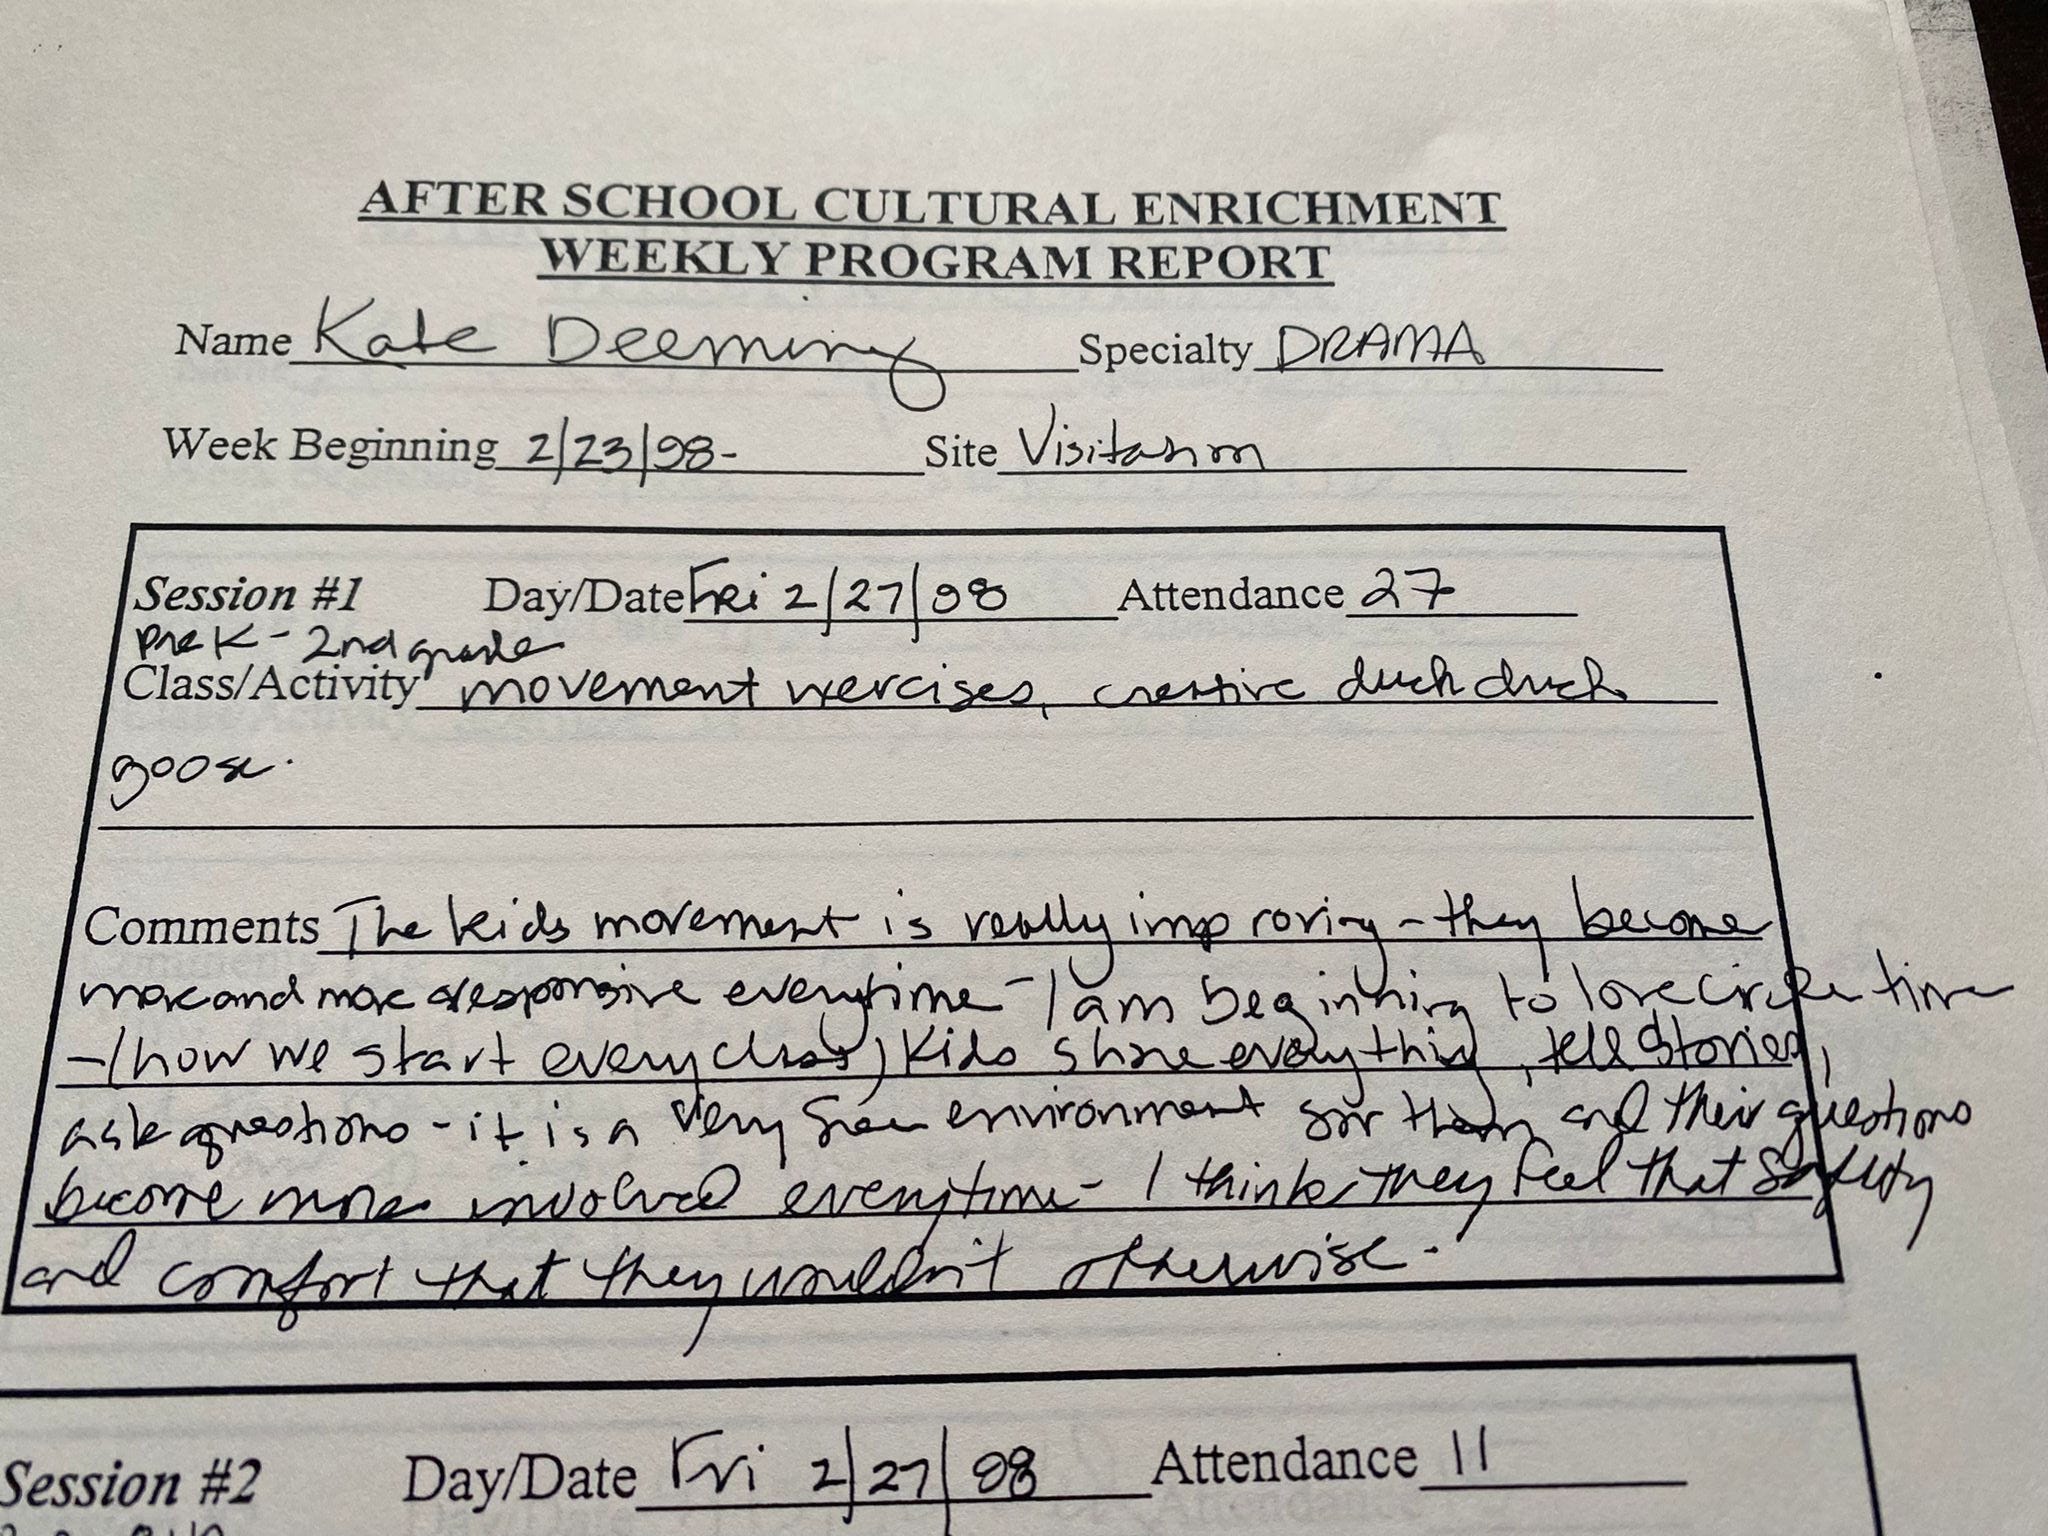 AFTER SCHOOL CULTURAL ENRICHMENT
WEEKLY PROGRAM REPORT
Name Kate Deeming Specialty DRAMA
Week Beginning 2/23/98- Site Visitation
Session #1 Day/Date Fri 2/27/98 Attendance 27
pre K - 2nd grade
Class/Activity movement exercises, creative duck duck
goose.
Comments The kids movement is really improving - they become
more and more responsive everytime - I am beginning to love circle time
- (how we start every class) kids share everything, tell stories,
ask questions - it is a very free environment for them and their questions
become more involved everytime - I think they feel that safety
and comfort that they wouldn't otherwise.
Session #2 Day/Date Fri 2/27/98 Attendance 11